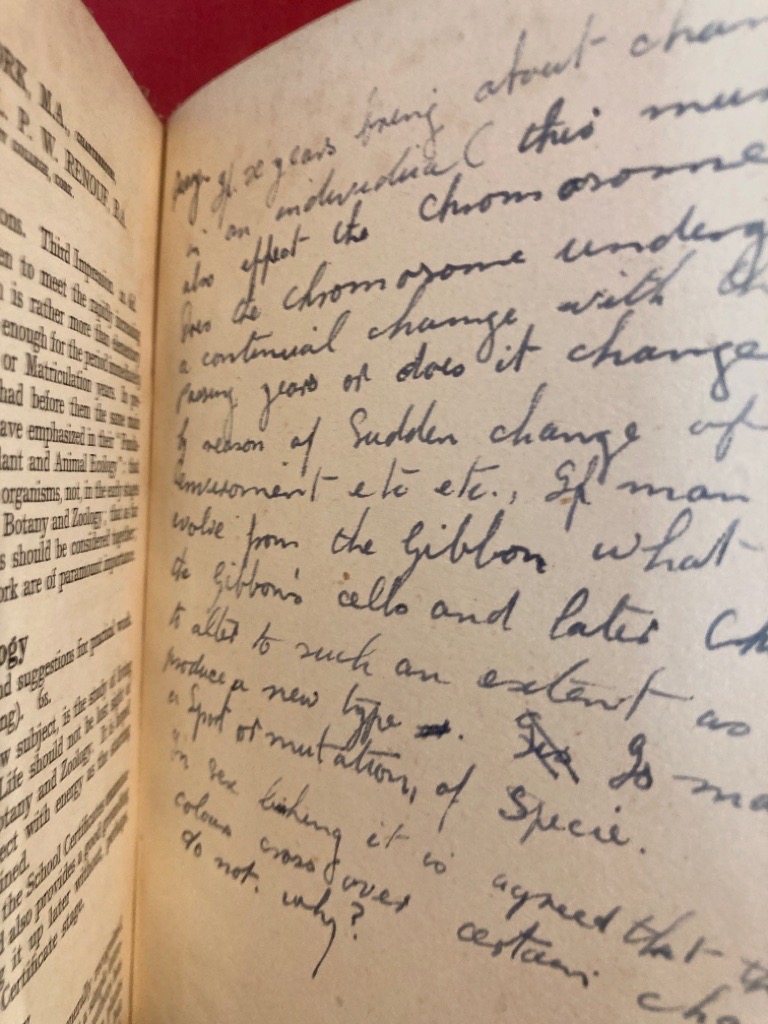 ORK, M.A.,
P. W. RENOUF, B.A.
ons. Third Impression
en to meet the rapidly increasing
n is rather more than elementary
enough for the period immediately
or Matriculation years.
had before them the same
ave emphasized in their
lant and Animal Ecology"; that
organisms, not, in the early stages
Botany and Zoology; that as far
s should be considered together;
ork are of paramount importance.
ogy
nd suggestions for practical work
ng). 6s.
w subject, is the study of living
Life should not be lost sight of
otany and Zoology.
ect with energy as the
ined.
the School Certificate
d also provides a good
g it up later without
Certificate stage.
If x years bring about chan
in an individual (this mus
also effect the chromosome
Does the chromosome underg
a continual change with th
passing years or does it change
by reason of sudden change of
enviroment etc etc., If man
evolve from the Gibbon what
the Gibbon's cells and later (h
to alter to such an extent as
produce a new type. Is ma
a Sport or mutation, of Specie.
in sex linking it is agreed that th
colour cross over certain cha
do not. why?